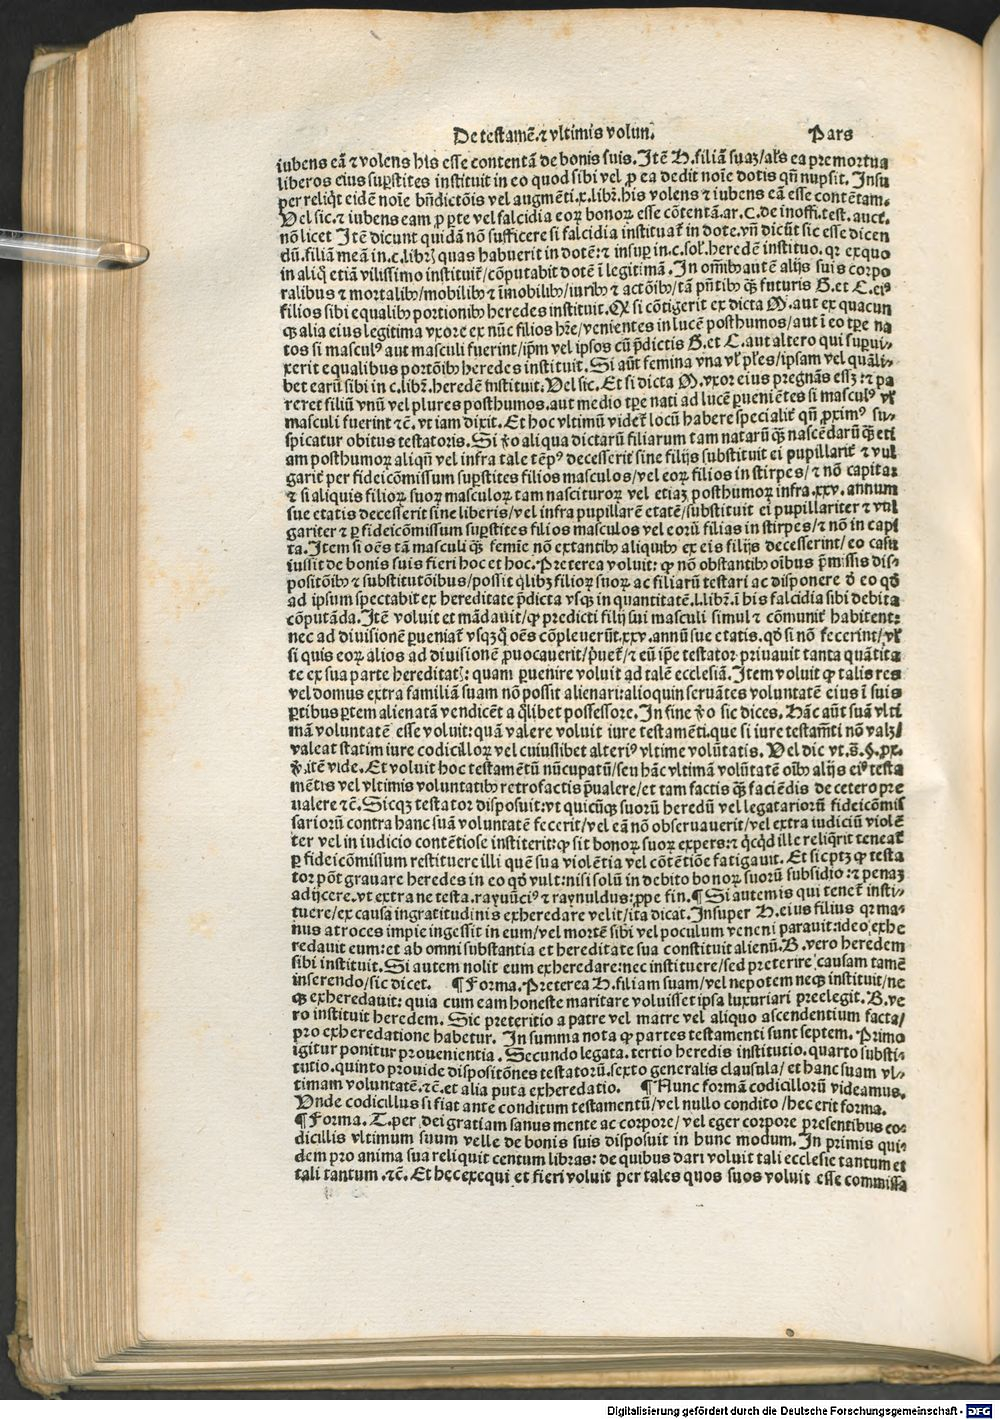 De testamē. ⁊ vltimis volun. Pars
iubens eā ⁊ volens his esse contentā de bonis suis. Itē H. filiā suaꝫ/als ea premortua
liberos eius suꝑstites instituit in eo quod sibi vel ꝓ ea dedit noīe dotis qñ nupsit. Insu
per reliq̄t eidē noīe bñdictōis vel augmēti .x. libr̄. his volens ⁊ iubens eā esse contētam.
Vel sic. ⁊ iubens eam ꝓ ꝑte vel falcidia eoꝝ bonoꝝ esse cōtentā. ar. C. de inoffi. test. auct.
nō licet Itē dicunt quidā nō sufficere si falcidia instituat̄ in dote. vñ dicūt sic esse dicen
dū. filiā meā in .c. libr̄. quas habuerit in dotē: ⁊ insuꝑ in .c. sol. heredē instituo. qr ex quo
in aliq̄ etiā vilissimo instituit̄/cōputabit dotē ī legitimā. In om̄ibꝰ autē alijs suis corpo
ralibus ⁊ mortalibꝰ/mobilibꝰ ⁊ īmobilibꝰ/iuribꝰ ⁊ actōibꝰ/tā pñtibꝰ q̄ꝫ futuris B. et C. eiꝰ
filios sibi equalibꝰ portionibꝰ heredes instituit. Qꝫ si cōtigerit ex dicta M. aut ex quacun
qꝫ alia eius legitima vxore ex nūc filios hr̄e/venientes in lucē posthumos/aut ī eo tꝑe na
tos si masculꝰ aut masculi fuerint/ip̄m vel ipsos cū p̄dictis B. et C. aut altero qui suꝑui-
xerit equalibus portōibꝰ heredes instituit. Si aūt femina vna vl̄ pl̄es/ipsam vel quāli-
bet earū sibi in c. libr̄. heredē instituit: Vel sic. Et si dicta M. vxor eius pregnās esset: ⁊ pa
reret filiū vnū vel plures posthumos. aut medio tꝑe nati ad lucē ꝑueniētes si masculꝰ vl̄
masculi fuerint ⁊c̄. vt iam dixit. Et hoc vltimū videt̄ locū habere specialit̄ qñ ꝓximꝰ su-
spicatur obitus testatoris. Si v̄o aliqua dictarū filiarum tam natarū q̄ꝫ nascēdarū q̄ꝫ eti
am posthumoꝝ aliqñ vel infra tale tēpꝰ decesserit sine filijs substituit ei pupillarit̄ ⁊ vul
garit̄ per fideicōmissum suꝑstites filios masculos/vel eoꝝ filios in stirpes/ ⁊ nō capita:
⁊ si aliquis filioꝝ suoꝝ masculoꝝ tam nascituroꝝ vel etiaꝫ posthumoꝝ infra .xxv. annum
sue etatis decesserit sine liberis/vel infra pupillarē etatē/substituit ei pupillariter ⁊ vul
gariter ⁊ ꝑ fideicōmissum suꝑstites filios masculos vel eorū filias in stirpes/⁊ nō in capi
ta. Item si oēs tā masculi q̄ꝫ femīe nō extantibꝰ aliquibꝰ ex eis filijs decesserint/eo casu
iussit de bonis suis fieri hoc et hoc. Preterea voluit: ꝙ nō obstantibꝰ oībus p̄missis dis-
positōibꝰ ⁊ substitutōibus/possit q̄libꝫ filioꝝ suoꝝ ac filiarū testari ac disponere d̄ eo qd̄
ad ipsum spectabit ex hereditate p̄dicta vsqꝫ in quantitatē .l. libr̄. ī his falcidia sibi debita
cōputāda. Itē voluit et mādauit/ꝙ predicti filij sui masculi simul ⁊ cōmunit̄ habitent:
nec ad diuisionē ꝑueniat̄ vsqꝫquo oēs cōpleuerūt .xxv. annū sue etatis. qd̄ si nō fecerint/vl̄
si quis eoꝝ alios ad diuisionē ꝓuocauerit/p̄uet̄/⁊ eū ip̄e testator priuauit tanta quātita
te ex sua parte hereditat̄: quam ꝑuenire voluit ad talē ecclesiā. Item voluit ꝙ talis res
vel domus extra familiā suam nō possit alienari: alioquin seruātes voluntatē eius ī suis
ꝑtibus ꝑtem alienatā vendicēt a q̄libet possessore. In fine v̄o sic dices. Hāc aūt suā vlti
mā voluntatē esse voluit: quā valere voluit iure testamēti. que si iure testam̄ti nō valꝫ/
valeat statim iure codicilloꝝ vel cuiuslibet alteriꝰ vltime volūtatis. Vel dic vt. s̄. §. ꝓx.
v̄. itē vide. Et voluit hoc testamētū nūcupatū/seu hāc vltimā volūtatē oībꝰ alijs eiꝰ testa
mētis vel vltimis voluntatibꝰ retrofactis p̄ualere/et tam factis q̄ꝫ faciēdis de cetero pre
ualere ⁊c̄. Sicqꝫ testator disposuit: vt quicūqꝫ suorū heredū vel legatariorū fideicōmis
sariorū contra hanc suā voluntatē fecerit/vel eā nō obseruauerit/vel extra iudiciū violē
ter vel in iudicio contētiose institerit: ꝙ sit bonoꝝ suoꝝ expers: ⁊ q̄cqd̄ ille reliq̄rit teneat̄
ꝑ fideicōmissum restituere illi quē sua violētia vel cōtētiōe fatigauit. Et sic ptꝫ ꝙ testa
tor pōt grauare heredes in eo qd̄ vult: nisi solū in debito bonoꝝ suorū subsidio: ⁊ penaꝫ
adijcere. vt extra ne testa. rayuūciꝰ ⁊ raynuldus: ꝓpe fin. ¶ Si autem is qui tenet̄ insti-
tuere/ex causa ingratitudinis exheredare velit/ita dicat. Insuper H. eius filius qr ma-
nus atroces impie ingessit in eum/vel mortē sibi vel poculum veneni parauit: ideo exhe
redauit eum: et ab omni substantia et hereditate sua constituit alienū. B. vero heredem
sibi instituit. Si autem nolit eum exheredare: nec instituere/sed preterire causam tamē
inserendo/sic dicet. ¶ Forma. Preterea H. filiam suam/vel nepotem neqꝫ instituit/ne
qꝫ exheredauit: quia cum eam honeste maritare voluisset ipsa luxuriari preelegit. B. ve
ro instituit heredem. Sic preteritio a patre vel matre vel aliquo ascendentium facta/
pro exheredatione habetur. In summa nota ꝙ partes testamenti sunt septem. Primo
igitur ponitur prouenientia. Secundo legata. tertio heredis institutio. quarto substi-
tutio. quinto prouide dispositōnes testatorū. sexto generalis clausula/ et hanc suam vl-
timam voluntatē. ⁊c̄. et alia puta exheredatio. ¶ Nunc formā codicillorū videamus.
Vnde codicillus si fiat ante conditum testamentū/vel nullo condito/hec erit forma.
¶ Forma. T. per dei gratiam sanus mente ac corpore/ vel eger corpore presentibus co-
dicillis vltimum suum velle de bonis suis disposuit in hunc modum. In primis qui-
dem pro anima sua reliquit centum libras: de quibus dari voluit tali ecclesie tantum et
tali tantum. ⁊c̄. Et hec exequi et fieri voluit per tales quos suos voluit esse commissa
Digitalisierung gefördert durch die Deutsche Forschungsgemeinschaft - DFG